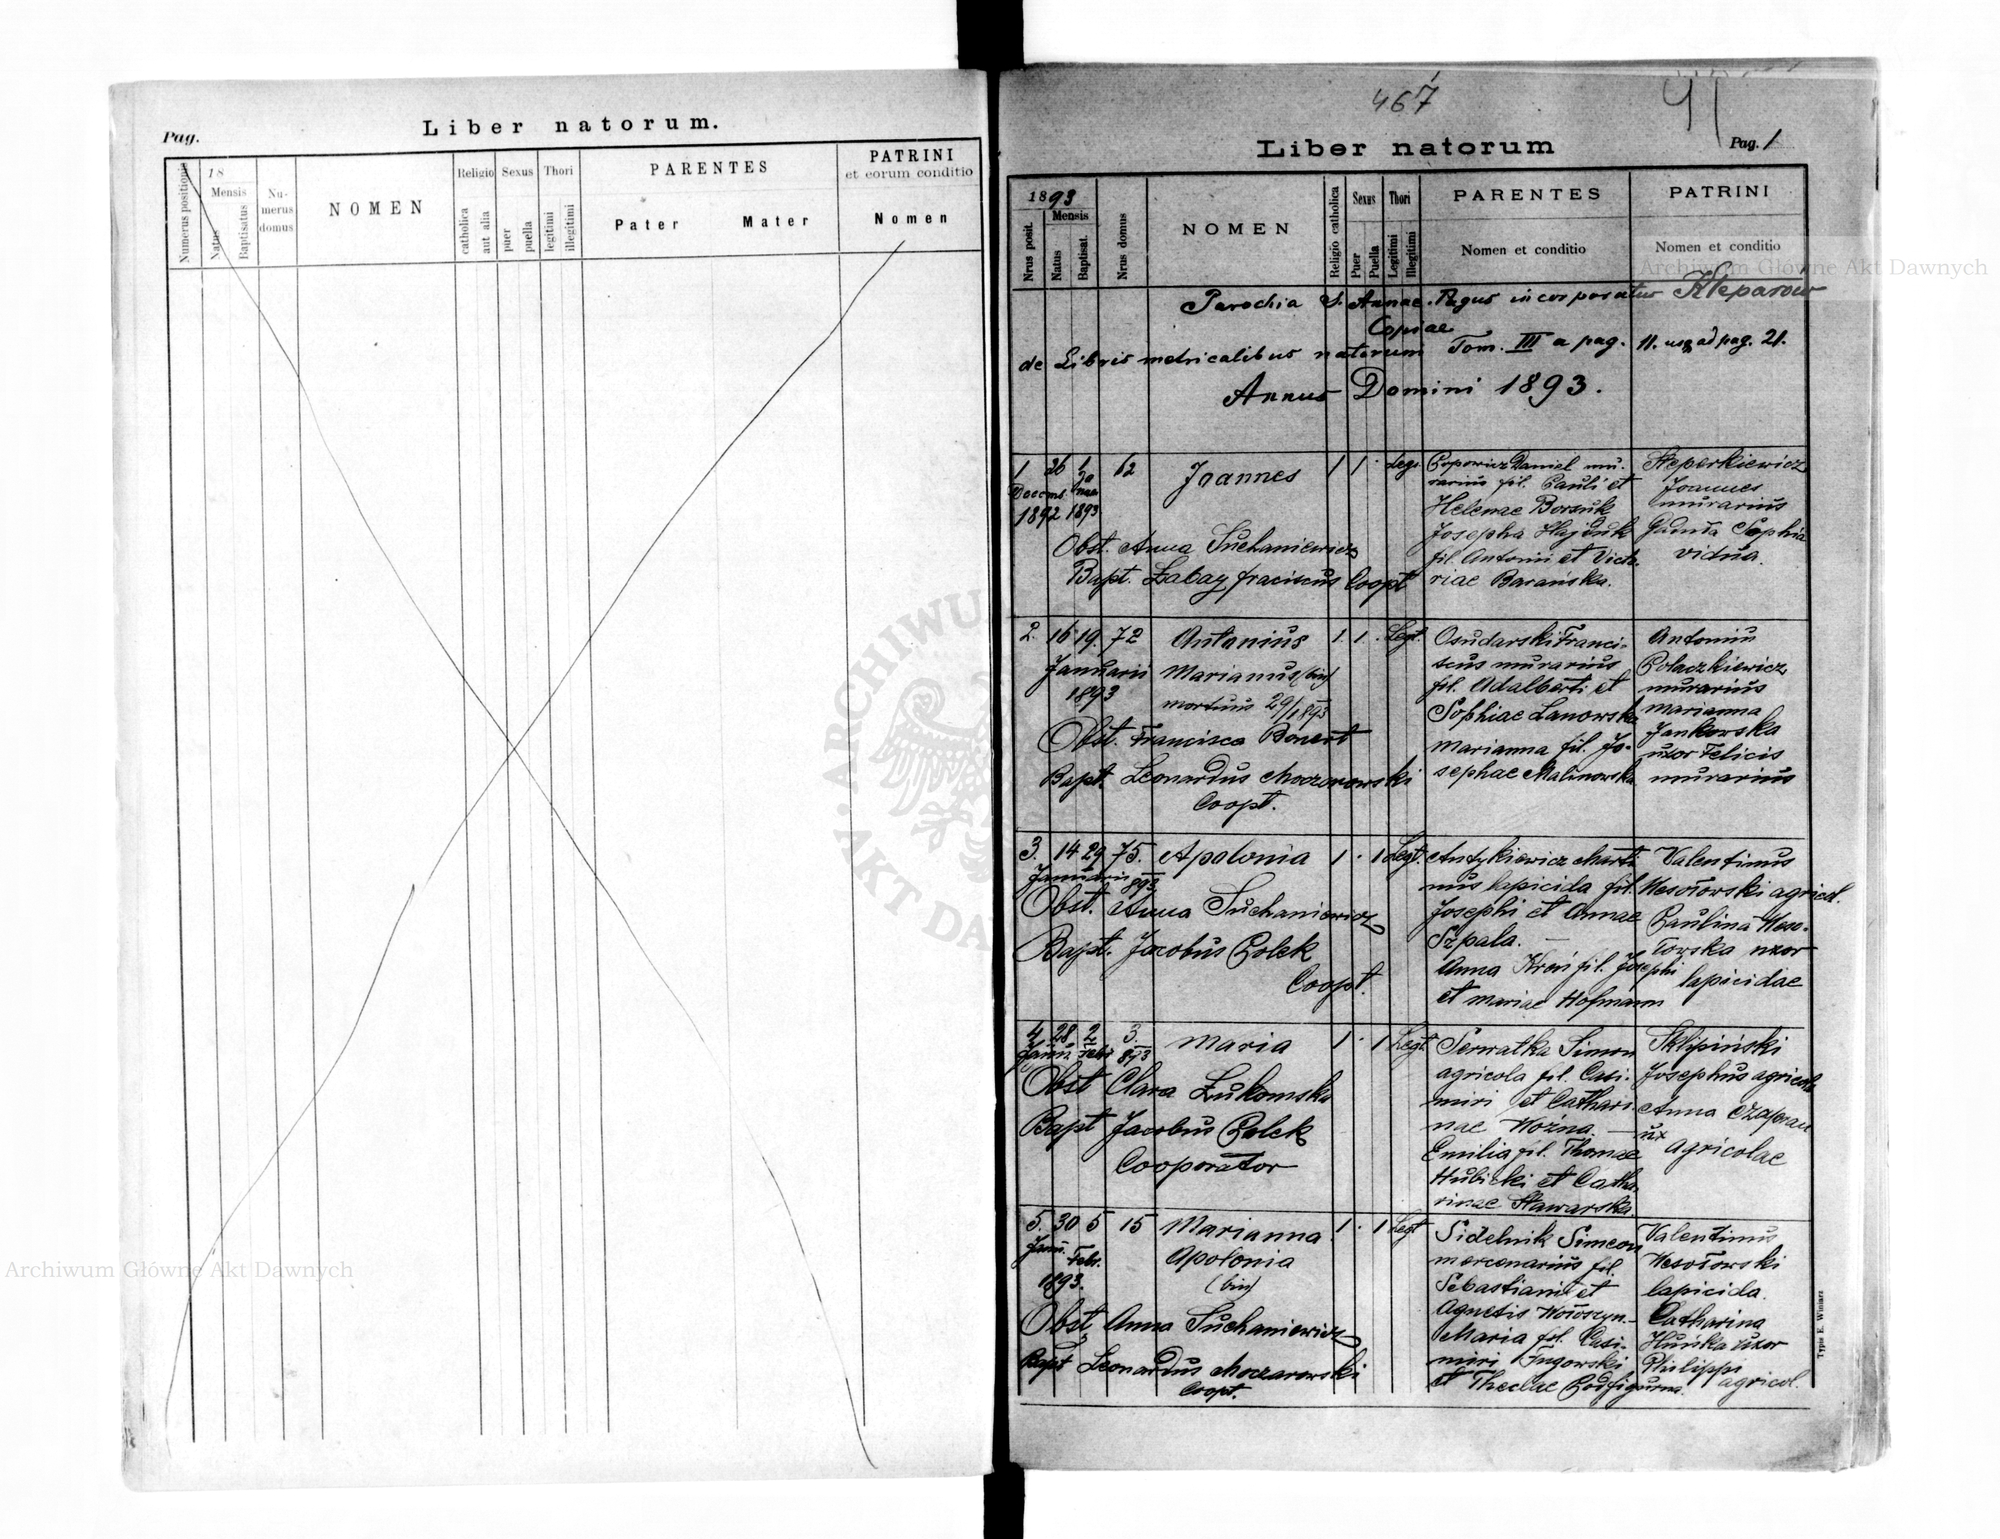 Pag.
Liber natorum.
Numerus positionis
18
Mensis
Natus
Baptisatus
Numerus domus
NOMEN
Religio
catholica
aut alia
Sexus
puer
puella
Thori
legitimi
illegitimi
PARENTES
Pater
Mater
PATRINI
et eorum conditio
Nomen
467
Liber natorum
Pag. 1
Nrus posit.
1893
Mensis
Natus
Baptisat.
Nrus domus
NOMEN
Religio catholica
Sexus
Puer
Puella
Thori
Legitimi
Illegitimi
PARENTES
Nomen et conditio
PATRINI
Nomen et conditio
Archiwum Główne Akt Dawnych
Parochia S. Annae. Pagus incorporatus Kleparow
Copiae
de Libris metricalibus natorum Tom. III a pag. 11. usq ad pag. 21.
Annus Domini 1893.
1 26 1 62 Joannes 1 1 .
1892 1893
Popowicz Daniel mu-
rarius fil. Pauli et
Helenae Borsuk
Josepha Hajduk
fil. Antonii et Victo-
riae Barańska.
Joannes
murarius
Sophia
vidua.
Obst. Anna Suchaniewicz
Bapt. Łabay Coopt
2. 16 19. 72 Antonius 1 . 1 . Legt.
Januarii Marianus (bin)
1893 mortuus 29/1 893
Obst. Francisca Bonert
Bapt. Leonardus Moczarowski
Coopt.
Osudarski Franci-
scus murarius
fil. Adalberti et
Sophiae Lanowska
Marianna fil. Jo-
sephae Malinowska
Antonius
Polaczkiewicz
murarius
Marianna
Jankowska
uxor Felicis
murarius
3. 14 29 75. Apolonia 1 . 1 Legt.
Januarii 893
Obst. Anna Suchaniewicz
Bapt. Jacobus Polek
Coopt.
Antykiewicz Marti
nus lapicida fil.
Josephi et Annae
Szpala. —
Anna Kreń fil. Josephi
et Mariae Hofmann
Valentinus
Wesołowski agricol.
Paulina Weso-
łowska uxor
lapicidae
4 28 2 3. Maria 1 . 1 Legt.
Janu. Febr 893
Obst Clara Łukomska
Bapt Jacobus Polek
Cooperator
Serwatka Simon
agricola fil. Casi-
miri et Cathari-
nae Woźna. —
Emilia fil. Thomae
Hubicki et Catha-
rinae Stawarska
Sklipiński
Josephus agricola
Anna
ux
agricolae
5. 30 5 15 Marianna 1 . 1 Legt
Janu. Febr. Apolonia
1893. (bin)
Obst Anna Suchaniewicz
Bapt Leonardus Moczarowski
Coopt.
Sidelnik Simeon
mercenarius fil.
Sebastiani et
Agnetis Wołoszyn-
Maria fil. Casi-
miri
et Theclae Podfigurna.
Valentinus
Wesołowski
lapicida.
Catharina
Huńka uxor
Philippi
agricol.
Typis E. Winiarz
ARCHIWUM
AKT DA
Archiwum Główne Akt Dawnych